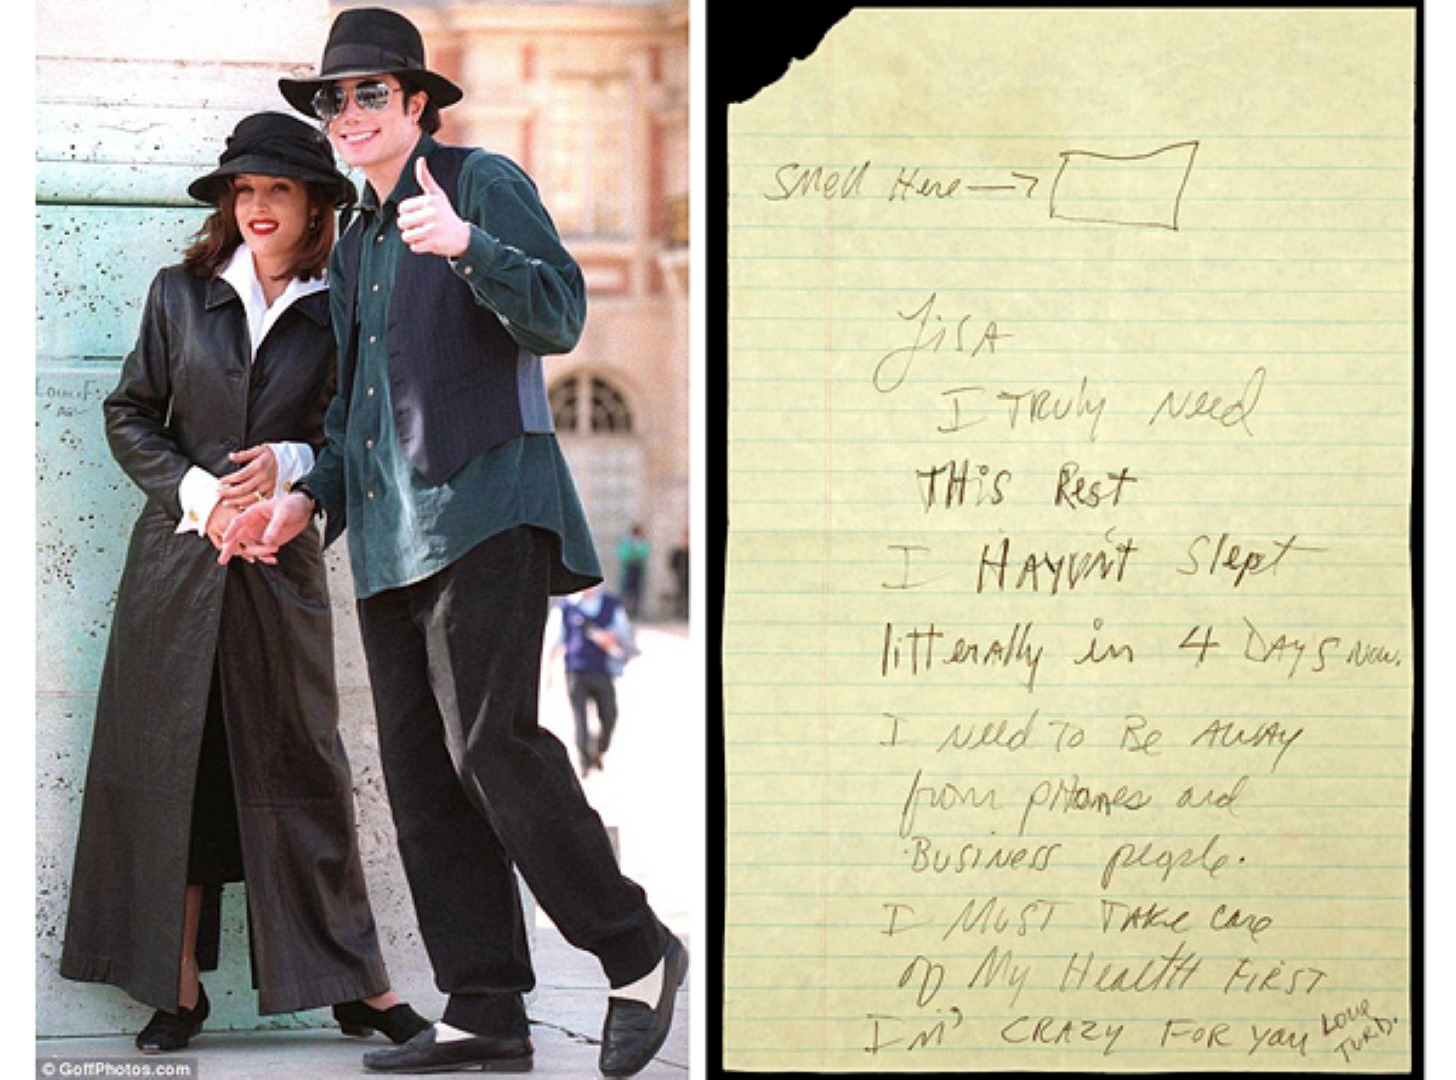 Smell Here
Lisa
I TRuly Need
THis Rest
I HAVEN'T Slept
litterally in 4 DAYS Now.
I Need To Be AWAY
from pHones and
BUSiNess people.
I MUST TAKe care
of My HealTH FiRST
I M' CRAZY FOR YOU
Love
TURD.
© GoffPhotos.com